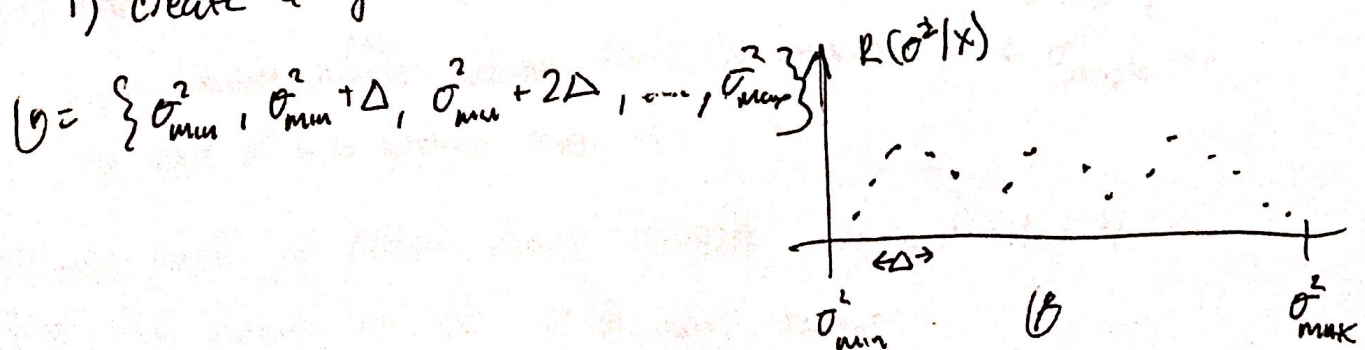 1) create a g
= { σ²min, σ²min + Δ, σ²min + 2Δ, ..., σ²max }
R(σ²|X)
←Δ→
σ²min
σ²max